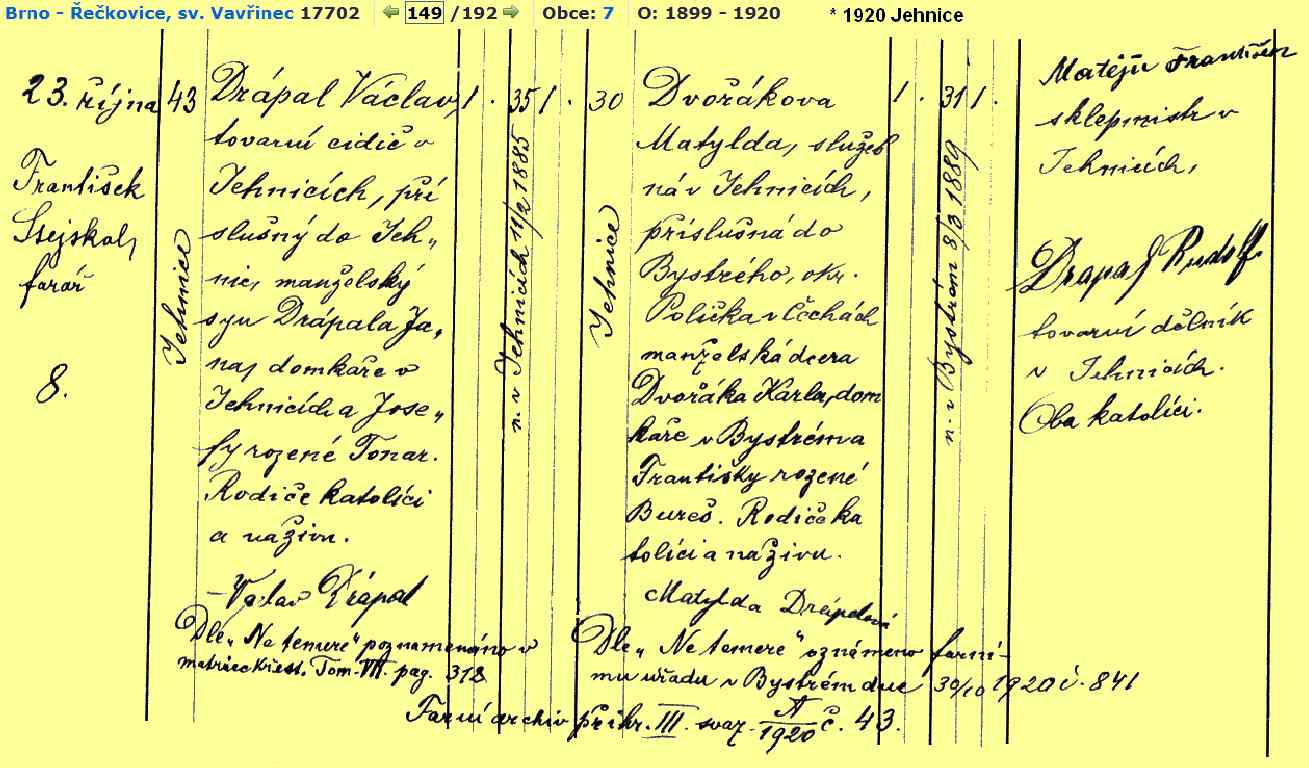 Brno - Řečkovice, sv. Vavřinec 17702 149 /192 Obce: 7 O: 1899 - 1920 * 1920 Jehnice
23. října
František
Stejskal,
farář
8.
43
Jehnice
Drápal Václav,
tovární cidič v
Jehnicích, pří
slušný do Jeh„
nic, manželský
syn Drápala Ja„
na, domkáře v
Jehnicích a Jose„
fy rozené Tonar.
Rodiče katolíci
a naživu.
Václav Drápal
1. 35 1.
n. v Jehnicích 11/2 1885
30
Jehnice
Dvořákova
Matylda, služeb
ná v Jehnicích,
příslušná do
Bystrého, okr.
Polička v Čechách
manželská dcera
Dvořáka Karla, dom
káře v Bystrém a
Františky rozené
Bureš. Rodiče ka
tolíci a naživu.
Matylda Drápalová
1. 31 1.
n. v Bystrém 8/3 1889
Matějů František
sklepmistr v
Jehnicích,
Drápal Rudolf
tovární dělník
v Jehnicích.
Oba katolíci.
Dle „Ne temeré" poznamenáno v
matrice křest. Tom. VII. pag. 312
Dle „Ne temeré" oznámeno farní-
mu úřadu v Bystrém dne 30/10 1920 č. 841
Farní archiv přihr. III. svaz. A/1920 č. 43.